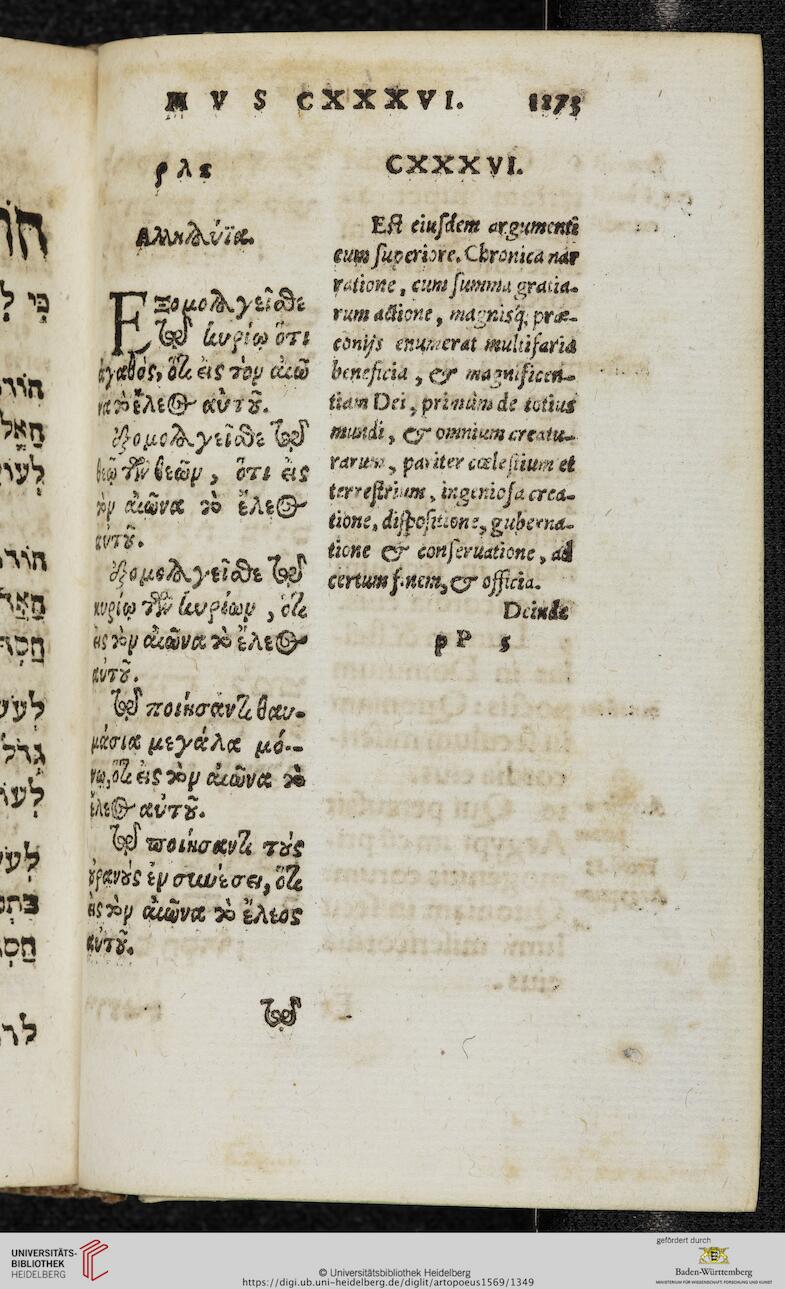 M V S CXXXVI. 1273
ρλε
Αλληλούϊα.
Εξομολογεῖσθε
τῷ κυρίῳ ὅτι
ἀγαθός, ὅτι εἰς τὸν αἰῶ
να τὸ ἔλεος αὐτοῦ.
ἐξομολογεῖσθε τῷ
θεῷ τῶν θεῶν, ὅτι εἰς
τὸν αἰῶνα τὸ ἔλεος
αὐτοῦ.
ἐξομολογεῖσθε τῷ
κυρίῳ τῶν κυρίων, ὅτι
εἰς τὸν αἰῶνα τὸ ἔλεος
αὐτοῦ.
τῷ ποιήσαντι θαυ-
μάσια μεγάλα μό-
νῳ, ὅτι εἰς τὸν αἰῶνα τὸ
ἔλεος αὐτοῦ.
τῷ ποιήσαντι τοὺς
οὐρανοὺς ἐν συνέσει, ὅτι
εἰς τὸν αἰῶνα τὸ ἔλεος
αὐτοῦ.
τῷ
CXXXVI.
Est eiusdem argumenti
cum superiore. Chronica nar
ratione, cum summa gratia-
rum actione, magnisq́; præ-
conijs enumerat multifaria
beneficia, & magnificen-
tiam Dei, primùm de totius
mundi, & omnium creatu-
rarum, pariter cœlestium et
terrestrium, ingeniosa crea-
tione, dispositione, guberna-
tione & conseruatione, ad
certum finem, & officia.
Deinde
pP 5
כִּי
UNIVERSITÄTS-
BIBLIOTHEK
HEIDELBERG
© Universitätsbibliothek Heidelberg
https://digi.ub.uni-heidelberg.de/diglit/artopoeus1569/1349
gefördert durch
Baden-Württemberg
MINISTERIUM FÜR WISSENSCHAFT, FORSCHUNG UND KUNST